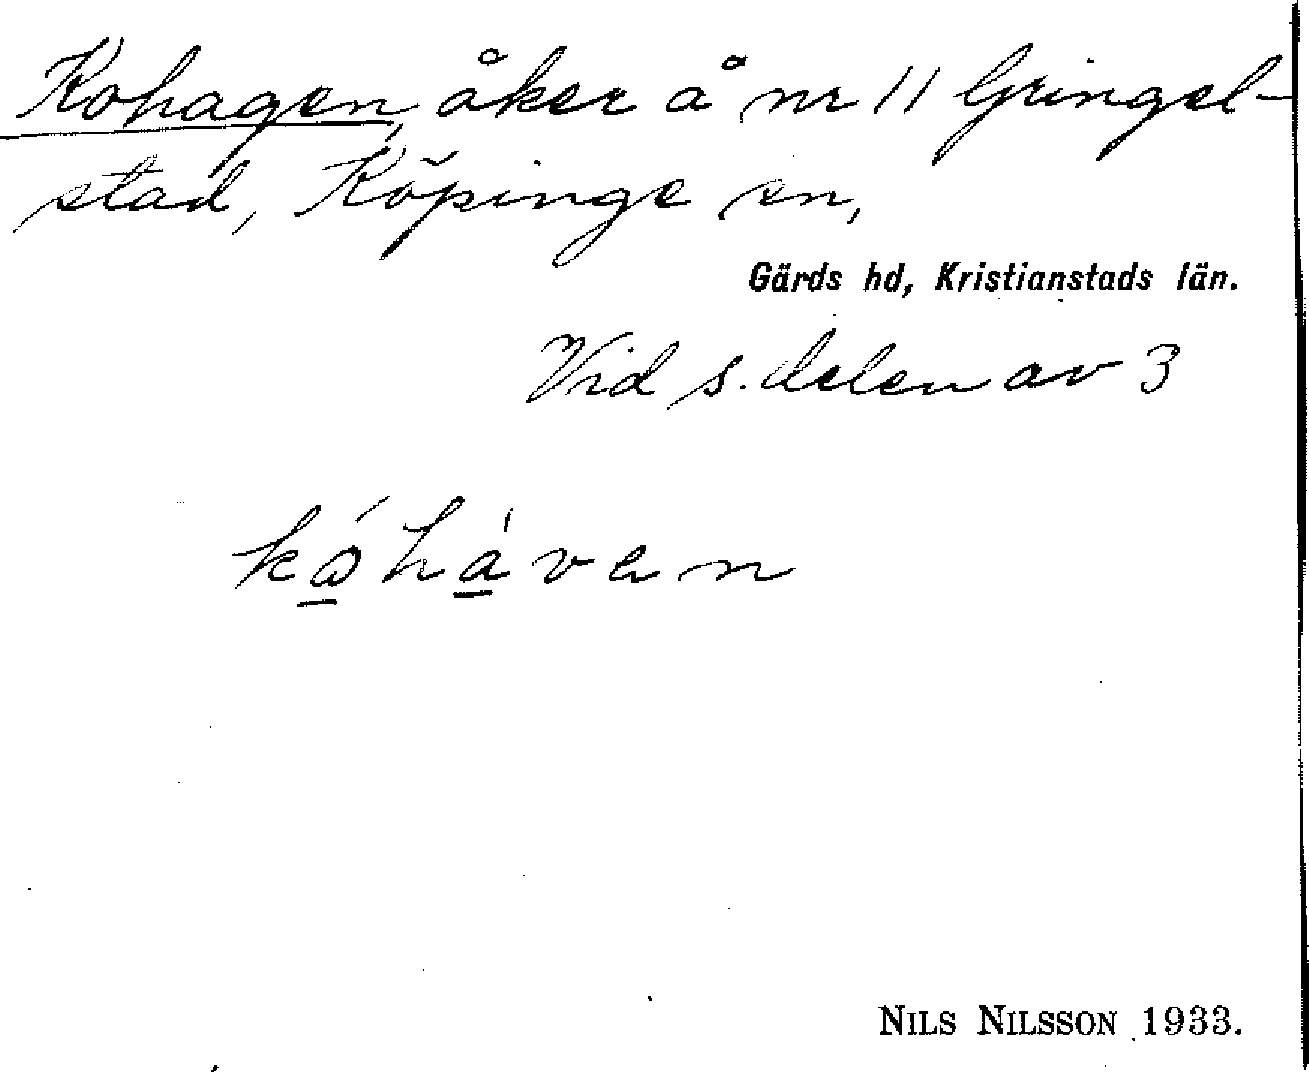 Kohagen, åker å nr 11 Gringel-
stad, Köpinge sn,
Gärds hd, Kristianstads län.
Vid s. delen av 3
NILS NILSSON 1933.